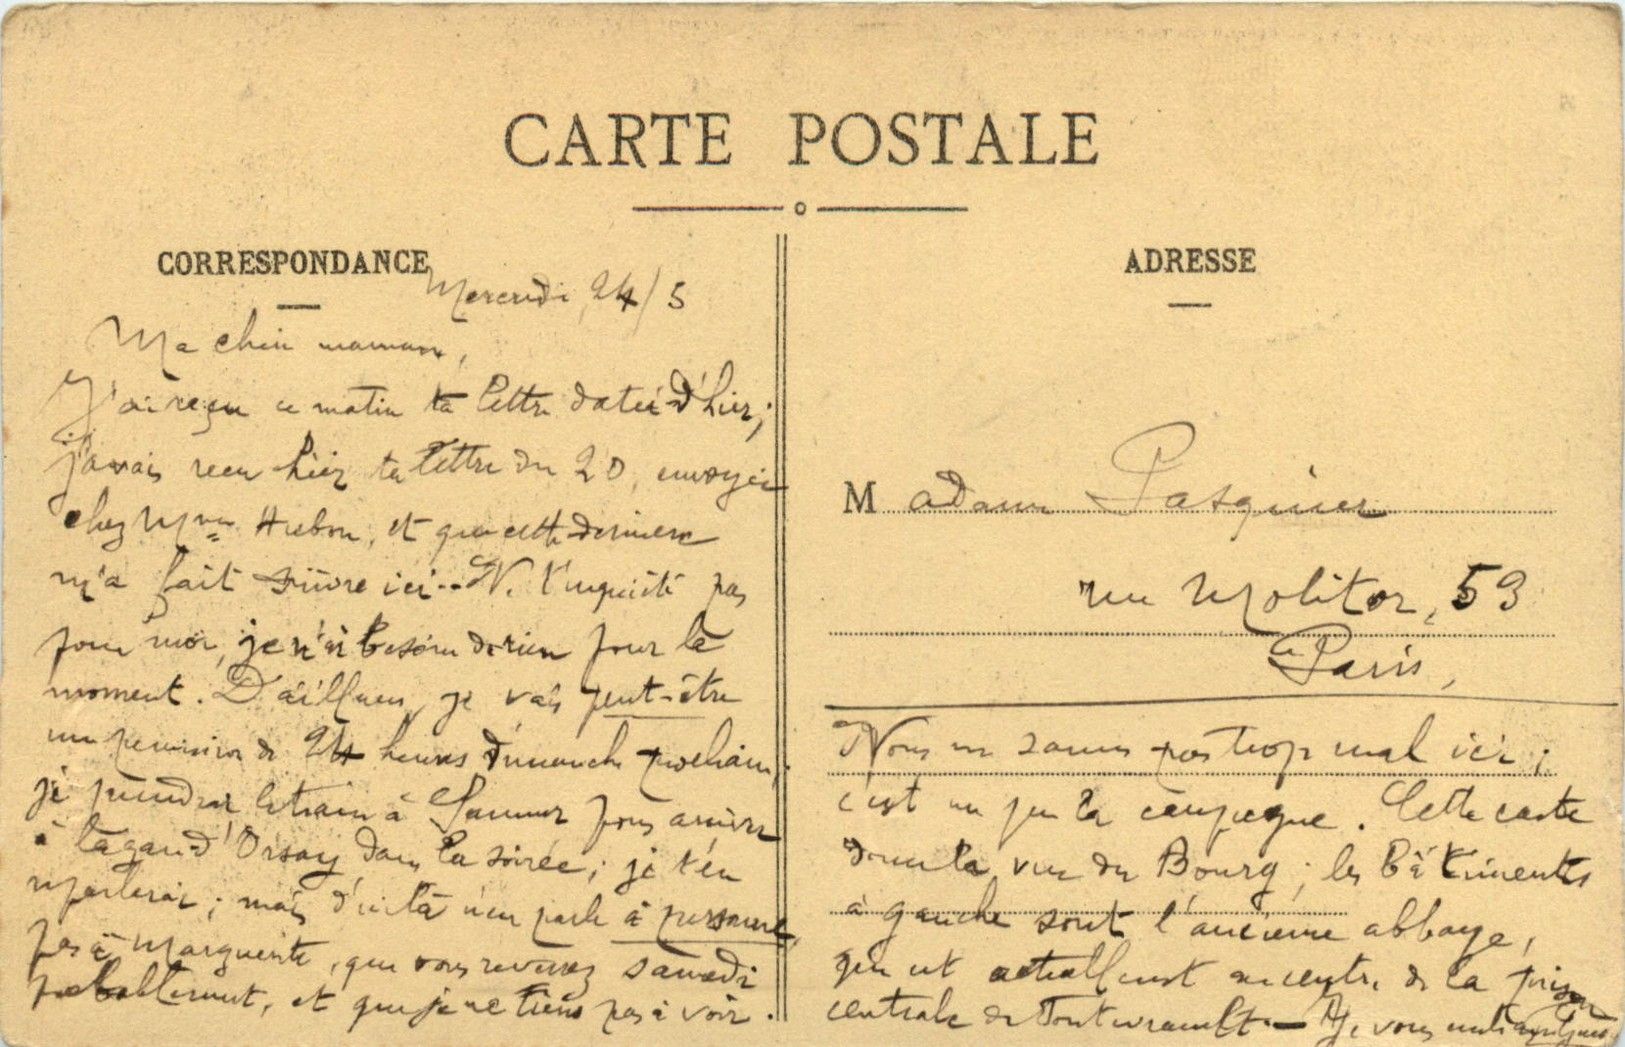 CARTE POSTALE
CORRESPONDANCE
Mercredi, 24/5
Ma chère maman,
J'ai reçu ce matin ta lettre datée d'hier ;
j'avais reçu hier ta lettre du 20, envoyée
chez Mme et que cette dernière
m'a fait suivre ici. - N. t'inquiète pas
pour moi, je n'ai besoin de rien pour le
moment. D'ailleurs, je vais peut-être
une permission de 24 heures dimanche prochain ;
je prendrai le train à Saumur pour arriver
à la gare d'Orsay dans la soirée ; je t'en
parlerai ; mais d'ici là n'en parle à personne,
pas à Marguerite, que vous reverrez samedi
probablement, et que je ne tiens pas à voir.
ADRESSE
Madame Pasquier
rue Molitor, 53
Paris,
Nous ne sommes pas trop mal ici ;
c'est un peu la campagne. Cette carte
donne la vue du Bourg ; les bâtiments
à gauche sont l'ancienne abbaye,
qui est actuellement au centre de la prison
centrale de Fontevrault. - Je vous